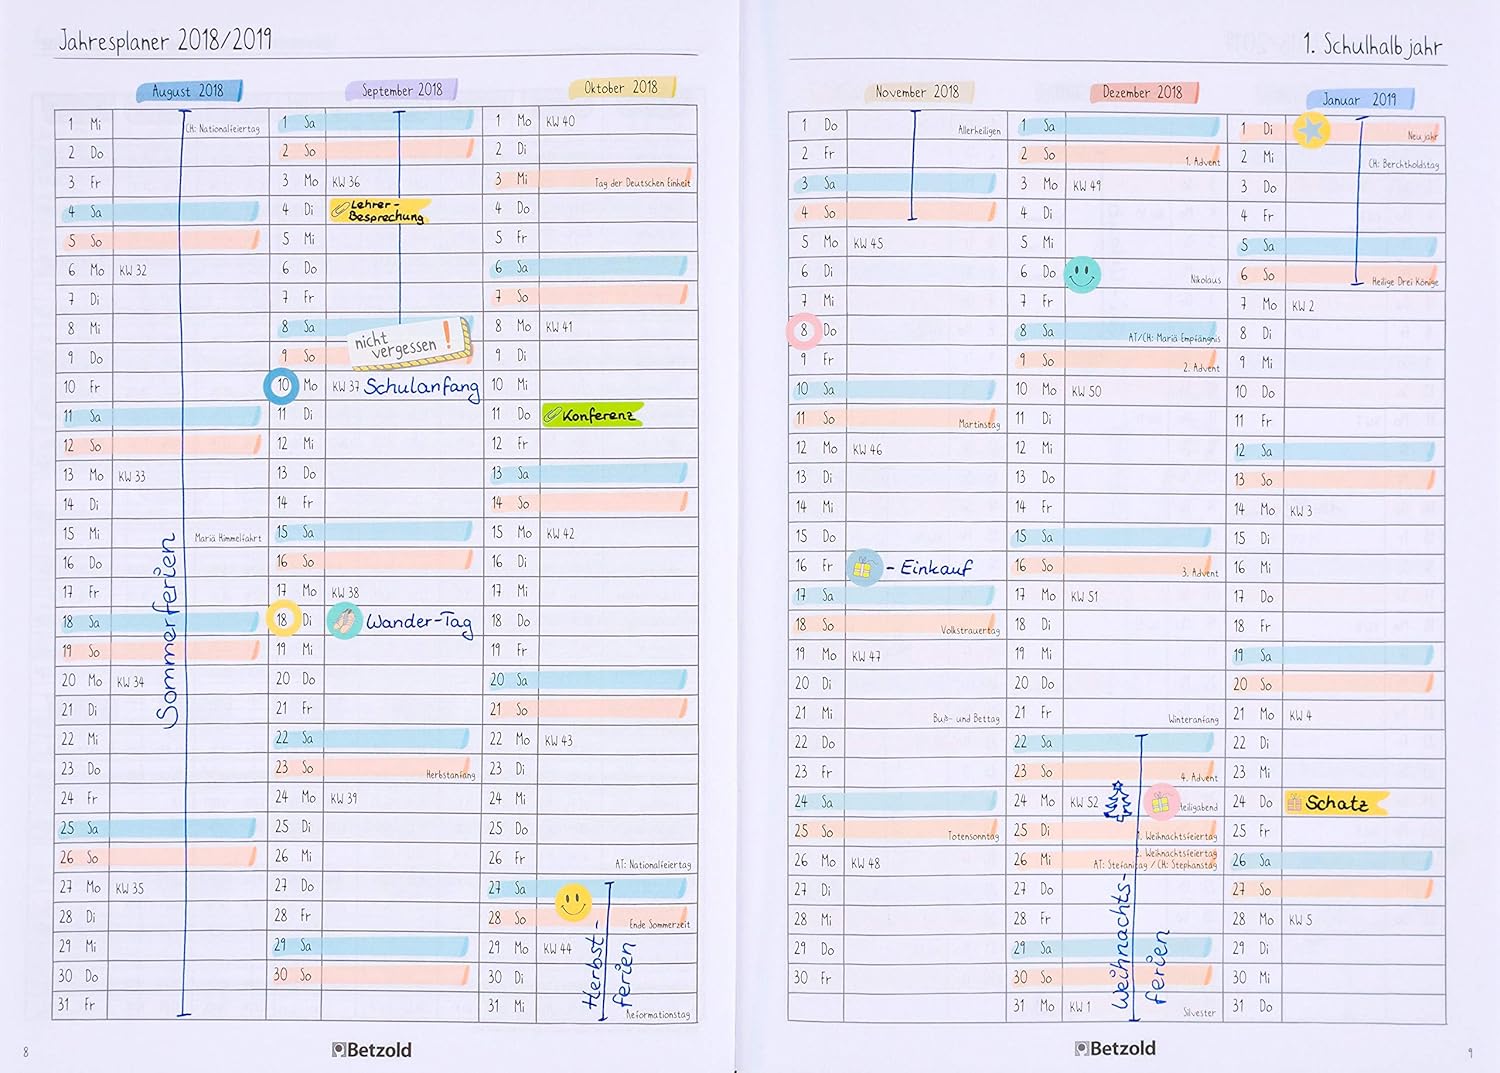 Jahresplaner 2018/2019
August 2018
1 Mi CH: Nationalfeiertag
2 Do
3 Fr
4 Sa
5 So
6 Mo KW 32
7 Di
8 Mi
9 Do
10 Fr
11 Sa
12 So
13 Mo KW 33
14 Di
15 Mi Mariä Himmelfahrt
16 Do
17 Fr
18 Sa
19 So
20 Mo KW 34
21 Di
22 Mi
23 Do
24 Fr
25 Sa
26 So
27 Mo KW 35
28 Di
29 Mi
30 Do
31 Fr
Sommerferien
September 2018
1 Sa
2 So
3 Mo KW 36
4 Di Lehrer-
Besprechung
5 Mi
6 Do
7 Fr
8 Sa
nicht
vergessen!
9 So
10 Mo KW 37 Schulanfang
11 Di
12 Mi
13 Do
14 Fr
15 Sa
16 So
17 Mo KW 38
18 Di Wander-Tag
19 Mi
20 Do
21 Fr
22 Sa
23 So Herbstanfang
24 Mo KW 39
25 Di
26 Mi
27 Do
28 Fr
29 Sa
30 So
Oktober 2018
1 Mo KW 40
2 Di
3 Mi Tag der Deutschen Einheit
4 Do
5 Fr
6 Sa
7 So
8 Mo KW 41
9 Di
10 Mi
11 Do Konferenz
12 Fr
13 Sa
14 So
15 Mo KW 42
16 Di
17 Mi
18 Do
19 Fr
20 Sa
21 So
22 Mo KW 43
23 Di
24 Mi
25 Do
26 Fr AT: Nationalfeiertag
27 Sa
28 So Ende Sommerzeit
29 Mo KW 44
30 Di
31 Mi Reformationstag
Herbst-
ferien
8
Betzold
1. Schulhalbjahr
November 2018
1 Do Allerheiligen
2 Fr
3 Sa
4 So
5 Mo KW 45
6 Di
7 Mi
8 Do
9 Fr
10 Sa
11 So Martinstag
12 Mo KW 46
13 Di
14 Mi
15 Do
16 Fr - Einkauf
17 Sa
18 So Volkstrauertag
19 Mo KW 47
20 Di
21 Mi Buß- und Bettag
22 Do
23 Fr
24 Sa
25 So Totensonntag
26 Mo KW 48
27 Di
28 Mi
29 Do
30 Fr
Dezember 2018
1 Sa
2 So 1. Advent
3 Mo KW 49
4 Di
5 Mi
6 Do Nikolaus
7 Fr
8 Sa AT/CH: Mariä Empfängnis
9 So 2. Advent
10 Mo KW 50
11 Di
12 Mi
13 Do
14 Fr
15 Sa
16 So 3. Advent
17 Mo KW 51
18 Di
19 Mi
20 Do
21 Fr Winteranfang
22 Sa
23 So 4. Advent
24 Mo KW 52 Heiligabend
25 Di 1. Weihnachtsfeiertag
26 Mi 2. Weihnachtsfeiertag
AT: Stefanitag / CH: Stephanstag
27 Do
28 Fr
29 Sa
30 So
31 Mo KW 1 Silvester
Weihnachts-
ferien
Januar 2019
1 Di Neujahr
2 Mi CH: Berchtholdstag
3 Do
4 Fr
5 Sa
6 So Heilige Drei Könige
7 Mo KW 2
8 Di
9 Mi
10 Do
11 Fr
12 Sa
13 So
14 Mo KW 3
15 Di
16 Mi
17 Do
18 Fr
19 Sa
20 So
21 Mo KW 4
22 Di
23 Mi
24 Do Schatz
25 Fr
26 Sa
27 So
28 Mo KW 5
29 Di
30 Mi
31 Do
Betzold
9